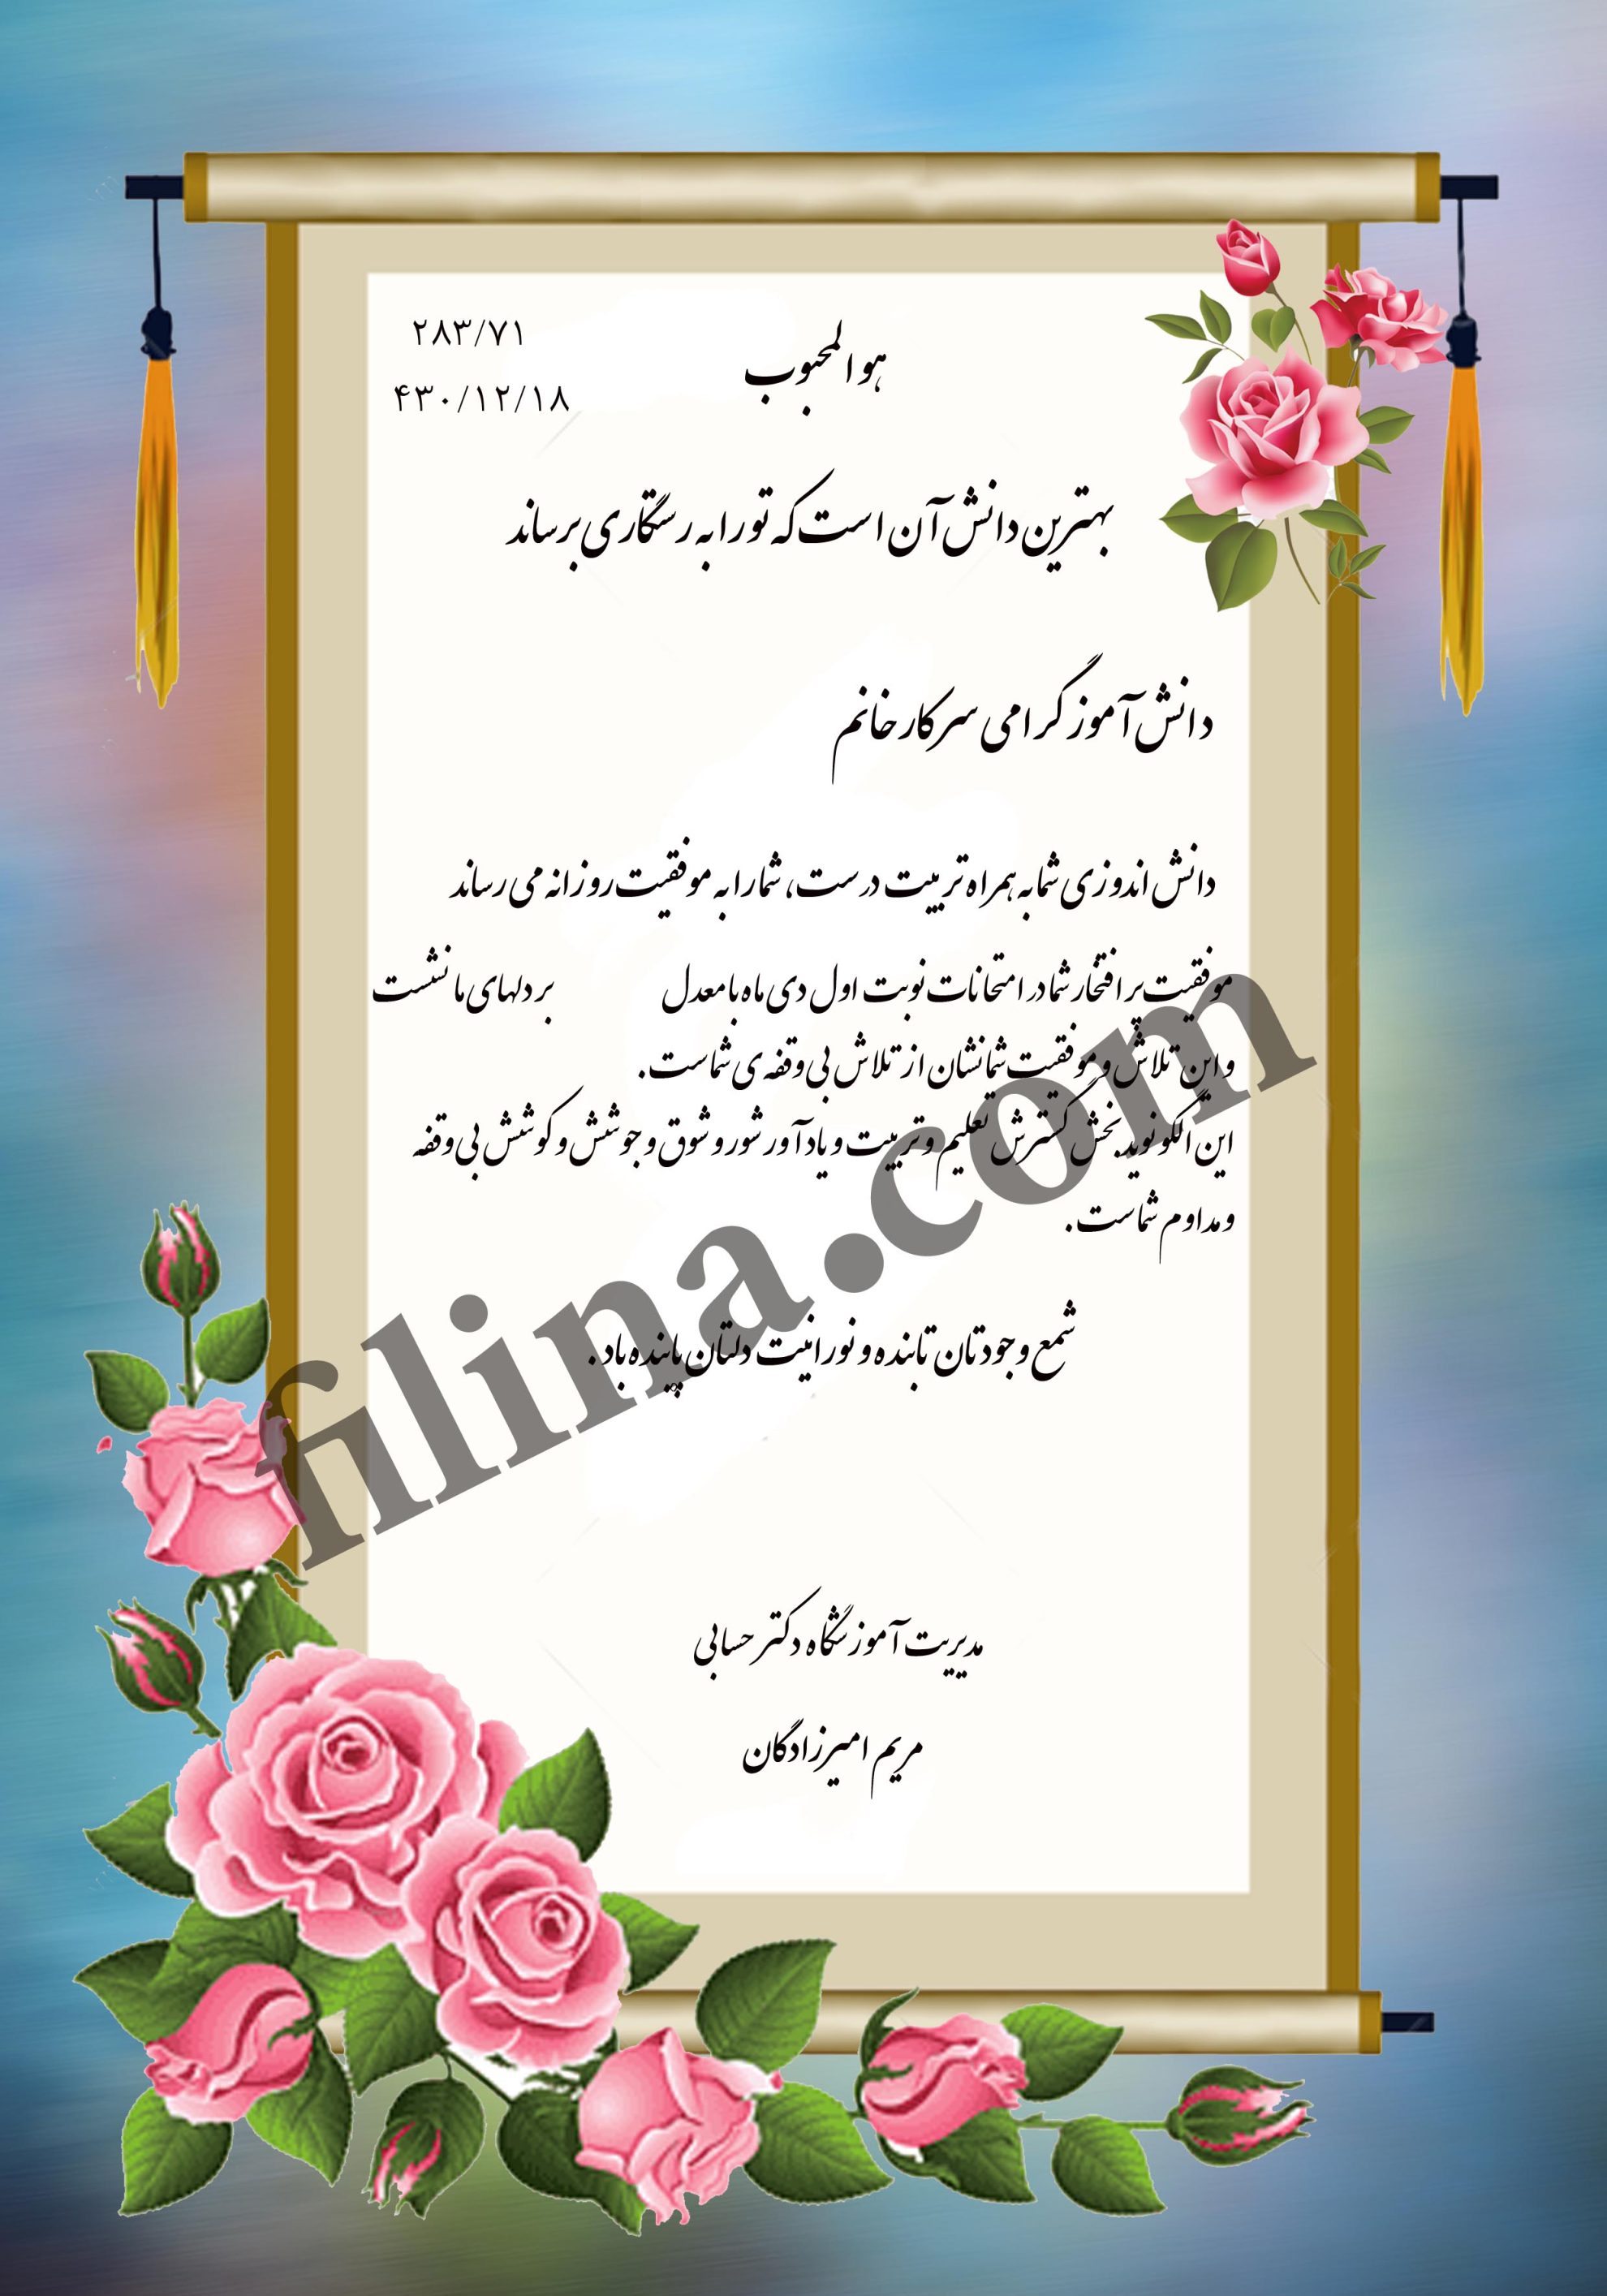 ۲۸۳/۷۱
هوالمحبوب
۴۳۰/۱۲/۱۸
بهترین دانش آن است که تو را به رستگاری برساند
دانش آموز گرامی سرکار خانم
دانش اندوزی شما به همراه تربیت درست، شما را به موفقیت روزانه می رساند
موفقیت پر افتخار شما در امتحانات نوبت اول دی ماه با معدل بر دلهای ما نشست
و این تلاش و موفقیت شما نشان از تلاش بی وقفه ی شماست.
این الگو نوید بخش گسترش تعلیم و تربیت و یاد آور شور و شوق و جوشش و کوشش بی وقفه
و مداوم شماست.
شمع وجودتان تابنده و نورانیت دلتان پاینده باد.
filina.com
مدیریت آموزشگاه دکتر حسابی
مریم امیرزادگان